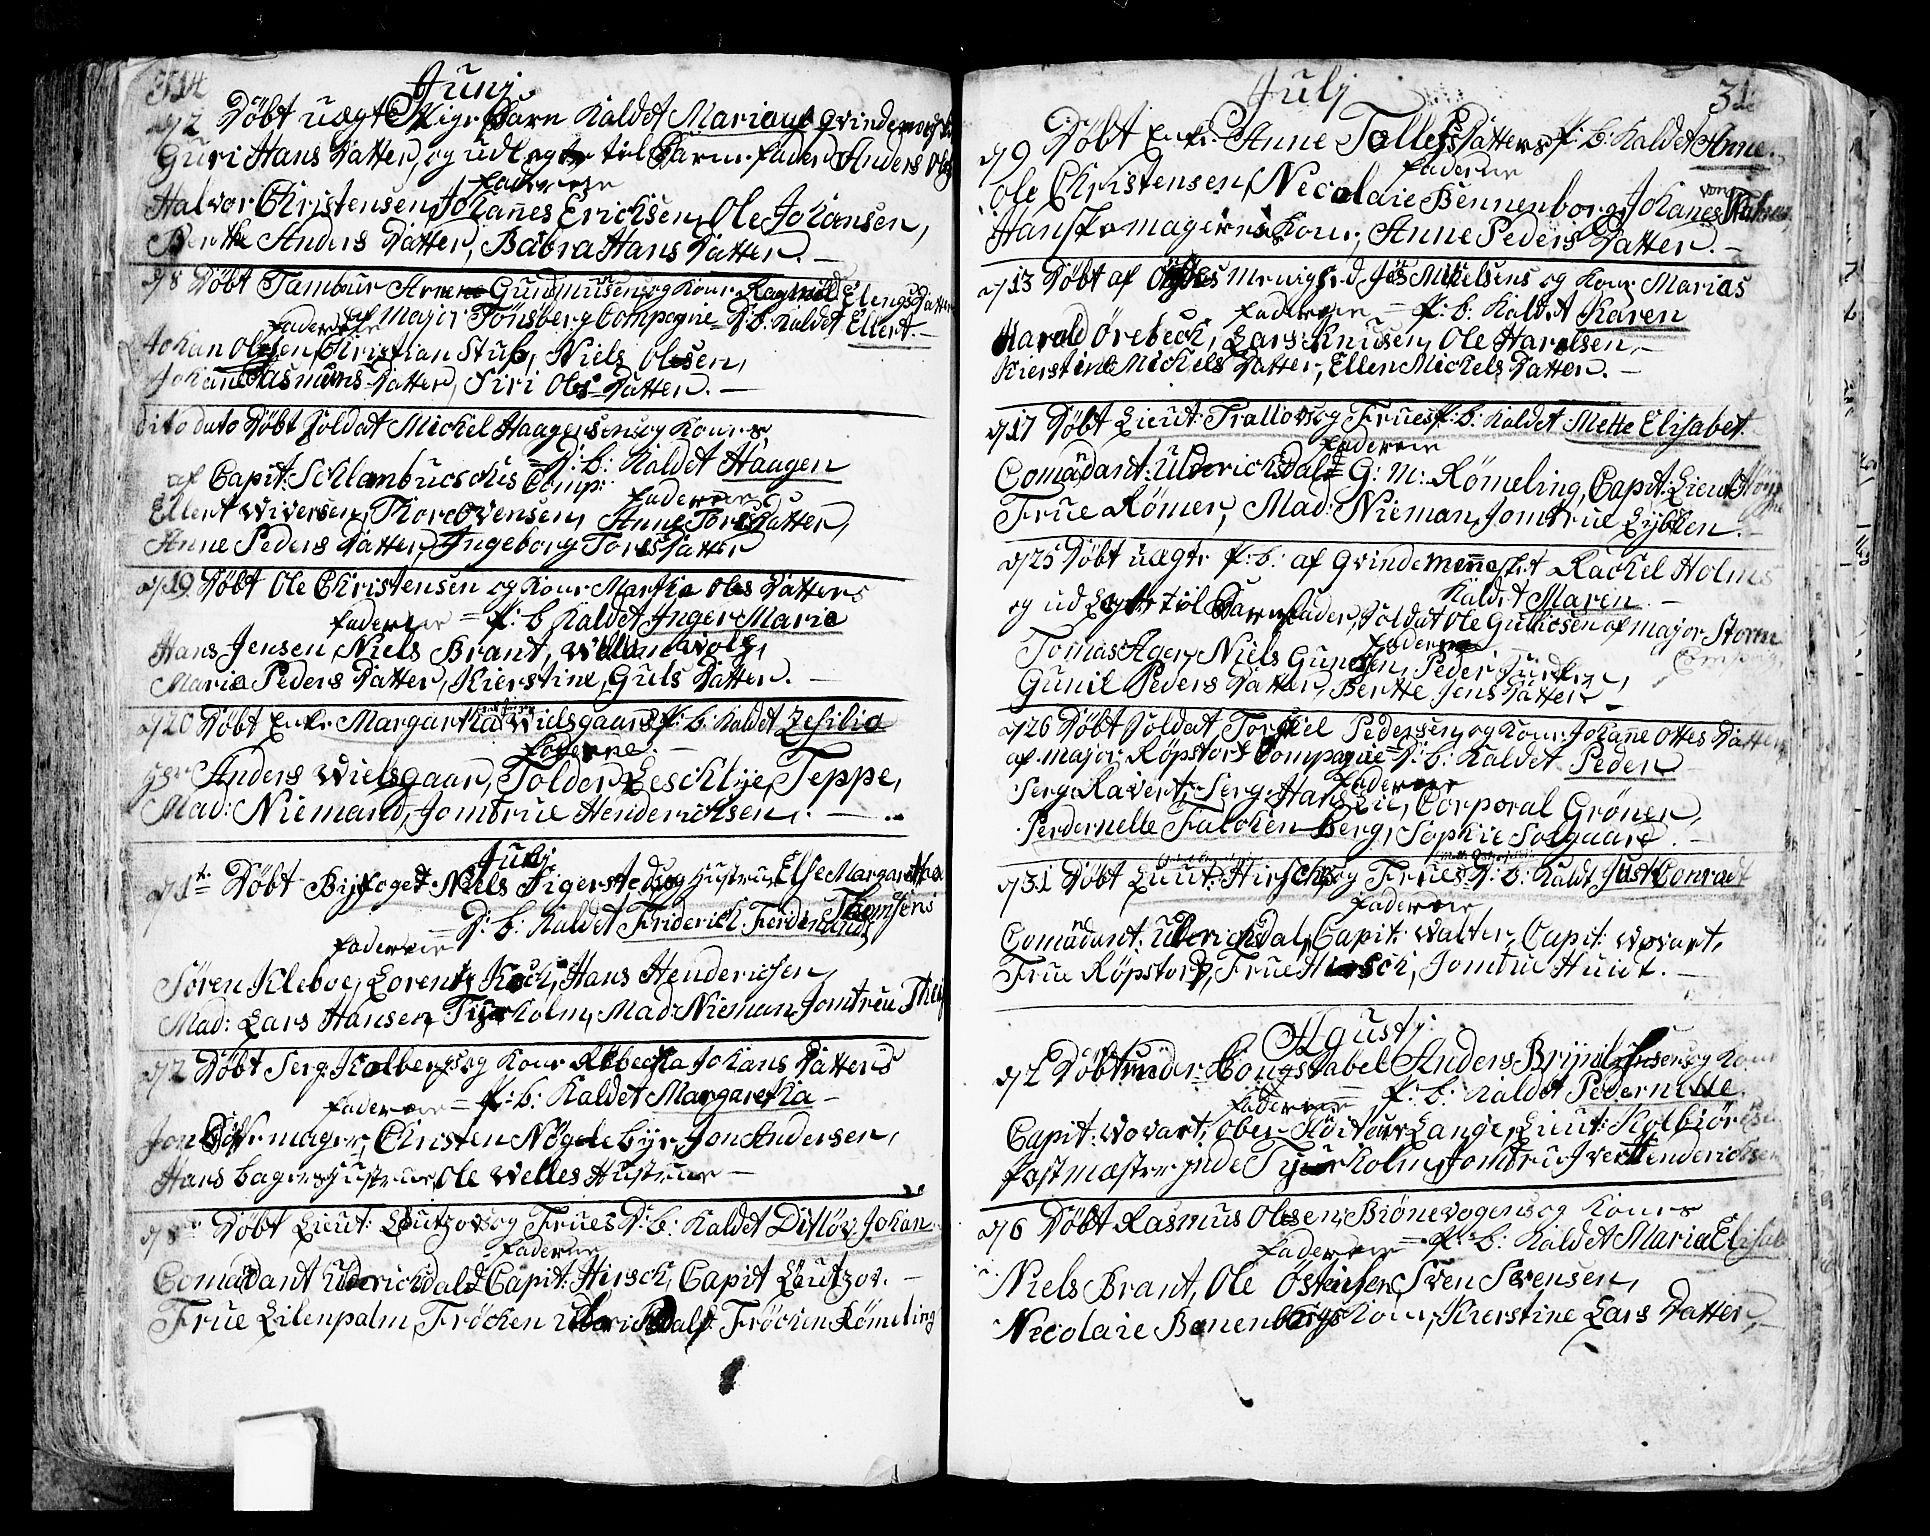 Junj
d/2 Døbt uægte Pige Barn Kaldet Maria af
Guri Hans Datter, og udlagte til Barne fader Anders
Fadderne
Halvor Christensen, Johannes Ericksen, Ole Johansen,
Berthe Anders Datter, Babra Hans Datter.
d/8 Døbt Tambur Gundmusens og Kone
Major Tønsberg Compagnie D: b: Kaldet Ellert.
Fadderne
Johan Olesen, Christian Stub, Niels Olesen,
Datter, Siri Ols Datter.
dito dato Døbt Soldat Mickel Haagensens og Kones
af Capit: Comp: D: b: Kaldet Haagen
Fadderne
Ellert Wiversen, Thore Ovensen, Anne Tores Datter,
Anne Peders Datter, Ingeborg Tores Datter
d/19 Døbt Ole Christensen og Kone Martha Oles Datters
Fadderne = P: b Kaldet Inger Maria
Hans Jensen, Niels Brant, Willum Wolf,
Maria Peders Datter, Kierstine Guls Datter.
d/20 Døbt Enke Margaretha Wielsgaards P: b: Kaldet Zesilia
Fadderne.
Hr Anders Wielsgaar, Tolder Leschlye, Teppe,
Mad: Niemand, Jomfrue Henderichsen.
Julj
d/1te Døbt Byfoget Niels Sigersteds og Hustrue Else Margaretha
Thomsens
D: b: Kaldet Friderich Ferdinand
Fadderne
Søren Kleboe, Lorentz Koch, Hans Henderichsen,
Mad: Lars Hansen, Tyrholm, Mad: Nieman, Jomfrue
d/2 Døbt Serg: Kolbergs og Kone Rebecka Johans Datters
Fadderne = P: b: Kaldet Margaretha
Jon magers, Christen Nøgleby, Jon Andersen,
Hans bagers Hustrue, Ole Welles Hustrue
d/8 Døbt Lieut: Lützovs og Frues D: b: Kaldet Ditløv Johan
Fadderne
Comadant Ulderichdal, Capit: Hirsch, Capit Lützov.
Frue Lilenpalm, Frøchen Ulderichdal, Frøchen Rømeling
Julj
d/9 Døbt Enke Anne Tollefs Datters P: b: Kaldet Anne.
Fadderne
Ole Christensen, Necolaie Bennenborg, Johanes
Hanskemagerens Kone, Anne Peders Datter.
d/13 Døbt af Menighed Jes Mielsens og Kone Marias
Fadderne = P: b: Kaldet Karen
Harald Ørebeck, Lars Knusen, Ole Harelsen,
Kierstine Mickels Datter, Ellen Mickels Datter.
d/17 Døbt Lieut: Trallovs og Frues P: b: Kaldet Mette Elisabet.
Fadderne
Comadant: Ulderichdal G: M: Rømeling, Capit: Lieut
Frue Rømer, Mad: Nieman, Jomfrue Lybken.
d/25 Døbt uægte P: b: af Qvindemennesket Rachel Holms
Kaldet Maren
og udlagte til Barnefader, Soldat Ole Gulicsen af major Storm
Compagnie
Fadderne
Tomas Ager, Niels Gundersen, Peder
Gunil Peders Datter, Berthe Jens Datter
d/26 Døbt Soldat Torkil Pedersens og Kone Johane Ottes Datter
af major Røpstorfs Compagnie D: b: Kaldet Peder
Fadderne
Serg: Ravert, Serg: Hans Lie, Corporal Grøner,
Perdernelle Falchenberg, Sophie Solgaard.
d/31 Døbt Lieut: Hirschs og Frues D: b: Kaldet Just Conradt
Fadderne
Comadant: Ulderichdal, Capit: Walter, Capit: Wovart,
Frue Røpstorf, Frue Hirsch, Jomfrue Huidt.
Agustj
d/2 Døbt under Congstabel Anders og Kone
Fadderne = P: b: Kaldet Pedernelle
Capit: Wovart, Ober Auditeur Lange, Lieut: Kolbiørnsen
Postmæster Tyrholm, Jomfrue Iver Henderichsen
d/6 Døbt Rasmus Olesen Biønevogens og Kones
Fadderne = P: b: Kaldet Maria Elisab
Niels Brant, Ole Østensen, Sven Svensen,
Nicolaie Benenborgs Kone, Kierstine Lars Datter